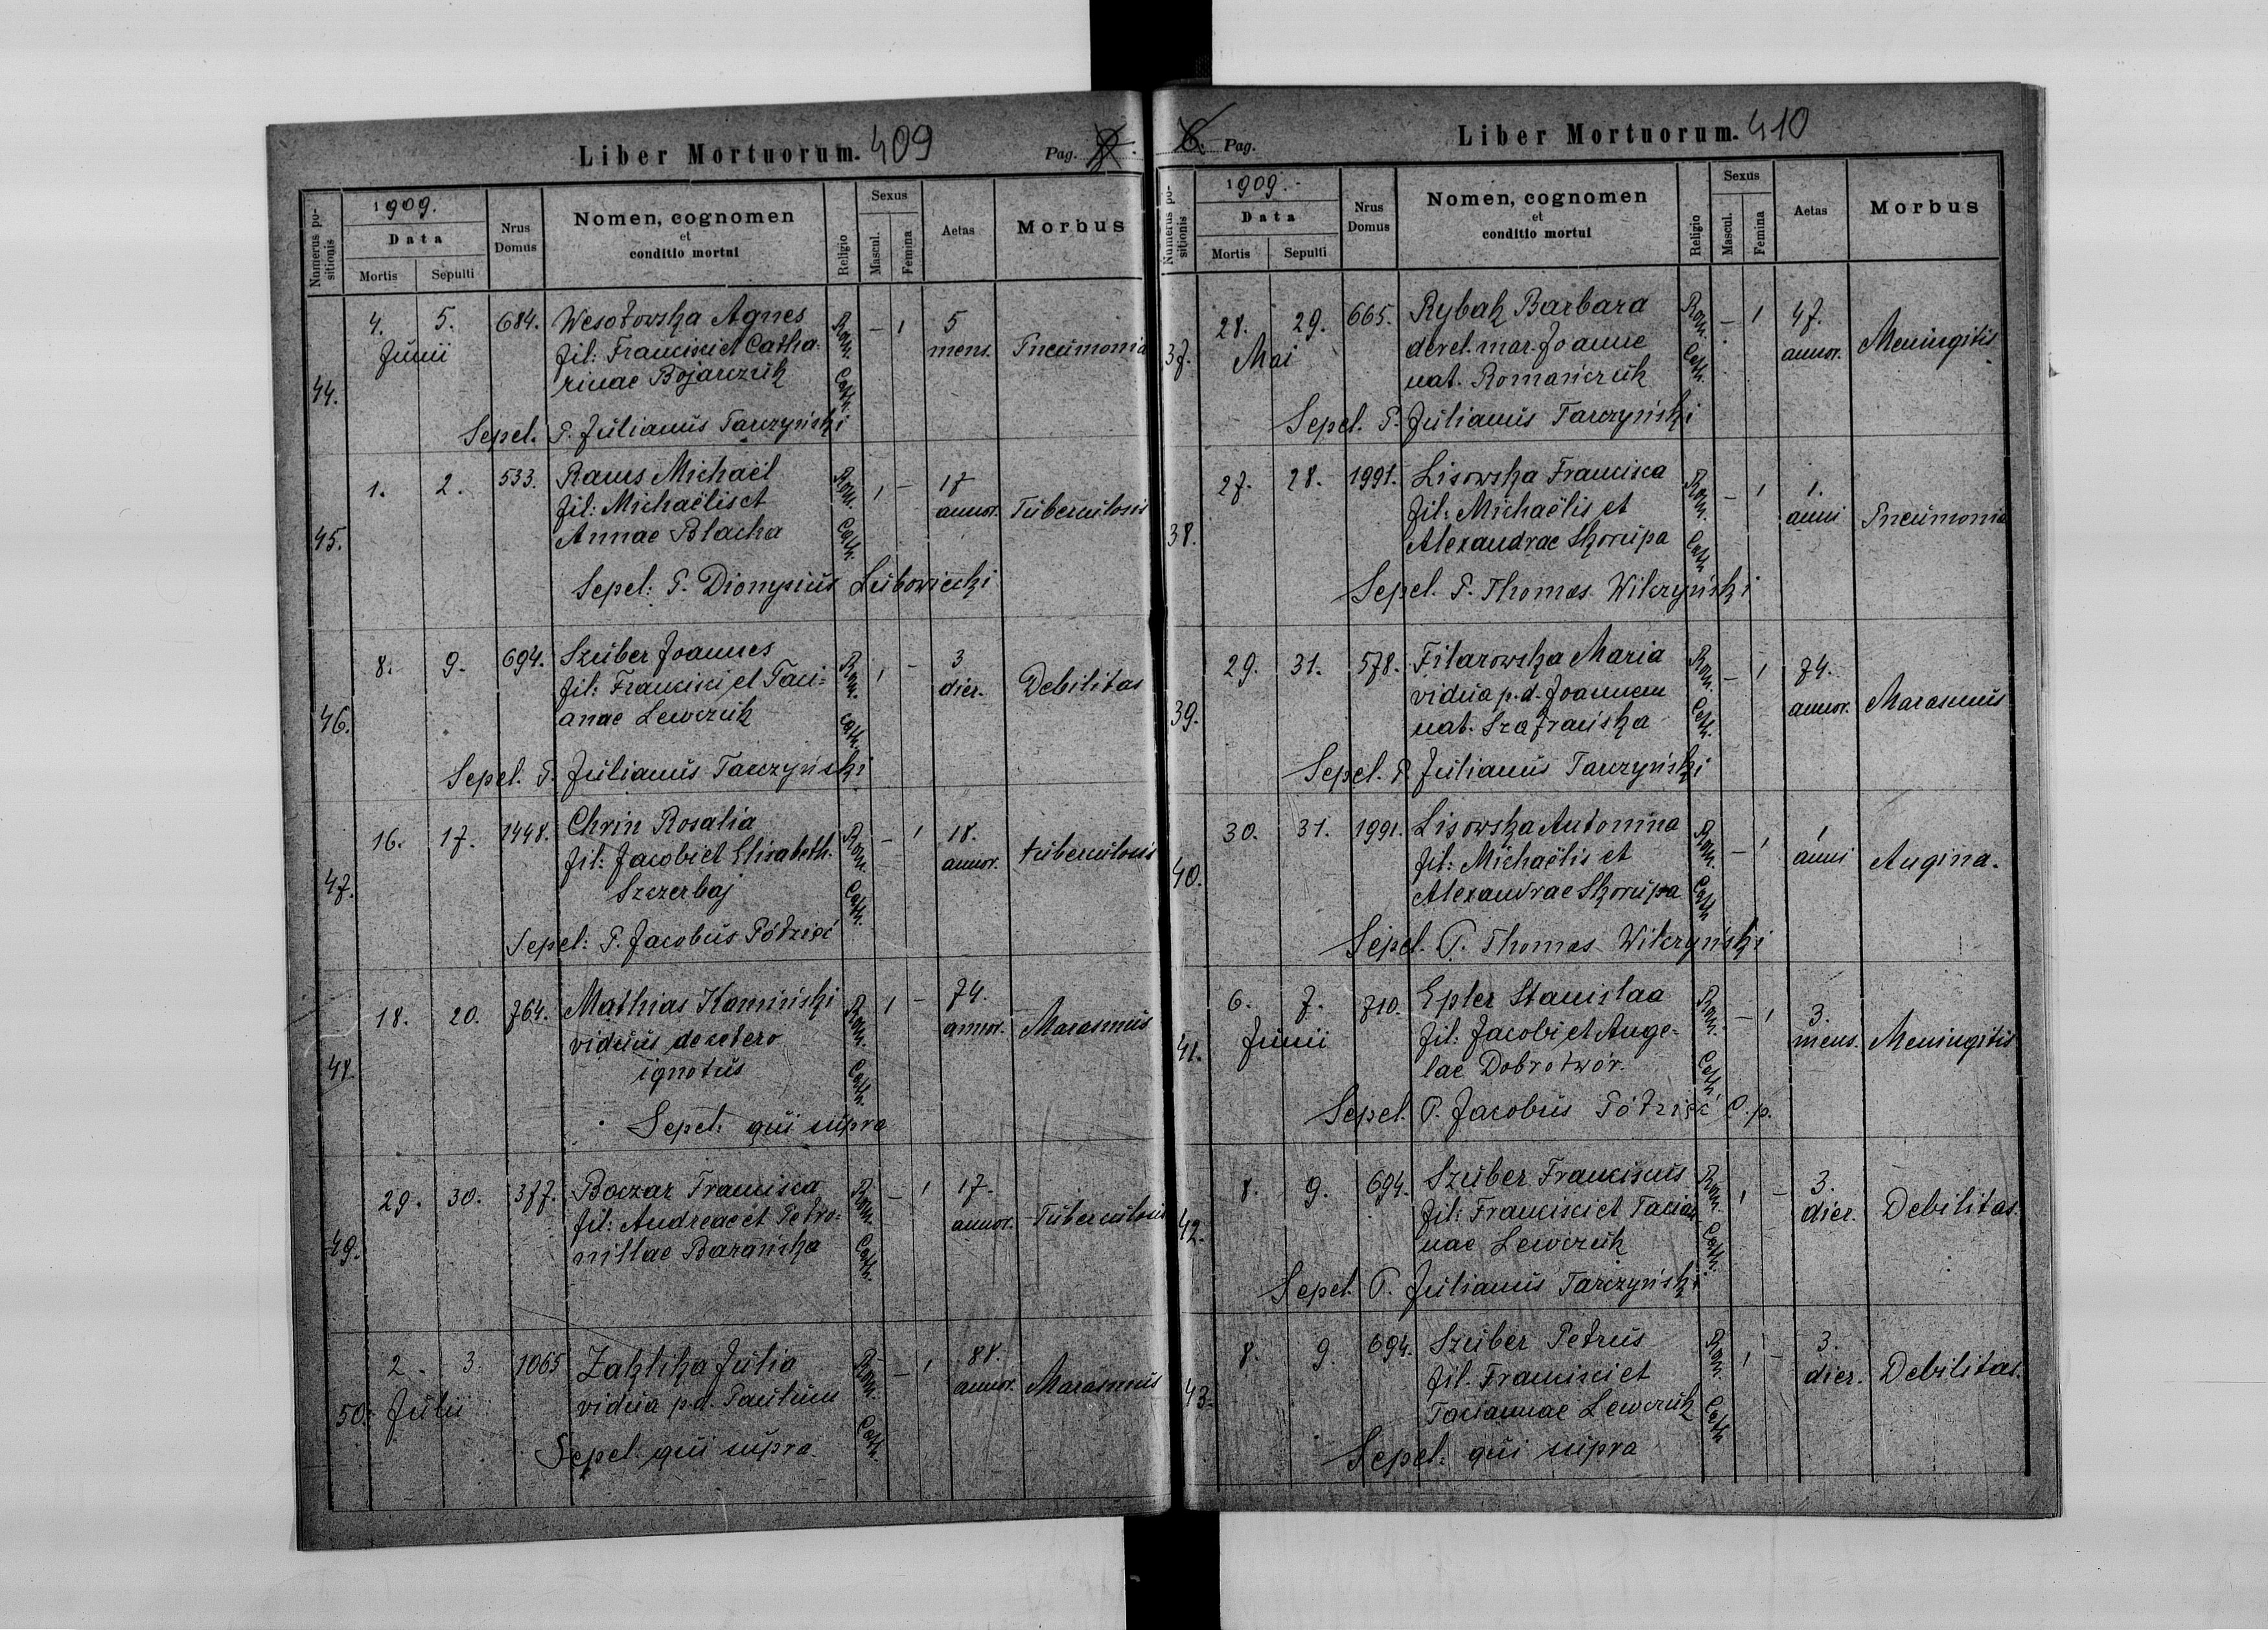 Liber Mortuorum. 409
Pag. 
Numerus positionis
1909.
Data
Mortis Sepulti
Nrus Domus
Nomen, cognomen
et
conditio mortui
Religio
Sexus
Mascul. Femina
Aetas
Morbus
44. 4. Junii 5. 684. Wesołowska Agnes Rom. Cath. – 1 5 mens. Pneumonia
fil: Francisci et Catha-
rinae Bojarczuk
Sepel. P. Julianus Tarczyński
45. 1. 2. 533. Raus Michaël Rom. Cath. 1 – 17 annor. Tuberculosis
fil: Michaëlis et
Annae Blacha
Sepel: P. Dionysius Lubowiecki
46. 8. 9. 694. Szuber Joannes Rom. Cath. 1 – 3 dier. Debilitas
fil: Francisci et Taci-
anae Lewczuk
Sepel. P. Julianus Tarczyński
47. 16. 17. 1448. Chrin Rosalia Rom. Cath. – 1 18. annor. tuberculosis
fil: Jacobi et Elisabeth.
Szczerbaj
Sepel: P. Jacobus Półzięć
48 18. 20. 764. Mathias Kamiński Rom. Cath. 1 – 74. annor. Marasmus
viduus de cetero
ignotus
Sepel: qui supra
49. 29. 30. 377. Boczar Francisca Rom. Cath. – 1 17. annor. Tuberculosis
fil: Andreae et Petro-
nillae Barańska
50. 2. Julii 3. 1065 Zaklika Julia Rom. Cath. – 1 88. annor. Marasmus
vidua p.d. Paulum
Sepel. qui supra
6. Pag.
Liber Mortuorum. 410
Numerus positionis
1909.
Data
Mortis Sepulti
Nrus Domus
Nomen, cognomen
et
conditio mortui
Religio
Sexus
Mascul. Femina
Aetas
Morbus
37. 28. Mai 29. 665. Rybak Barbara Rom. Cath. – 1 47. annor. Meningitis
derel. mar. Joanne
nat. Romańczuk
Sepel. P. Julianus Tarczyński
38. 27. 28. 1991. Lisowska Francisca Rom. Cath. – 1 1. anni Pneumonia
fil: Michaëlis et
Alexandrae Skorupa
Sepel. P. Thomas Wilczyński
39. 29. 31. 578. Filarowska Maria Rom. Cath. – 1 74. annor. Marasmus
vidua p.d. Joannem
nat. Szafrańska
Sepel. P. Julianus Tarczyński
40. 30. 31. 1991. Lisowska Antonina Rom. Cath – 1 1 anni Angina.
fil: Michaëlis et
Alexandrae Skorupa
Sepel. P. Thomas Wilczyński
41. 6. Junii 7. 710. Epler Stanislaa Rom. Cath. – 1 3. mens. Meningitis
fil: Jacobi et Ange-
lae Dobrotwór.
Sepel. P. Jacobus Półzięć O.p.
42. 8. 9. 694. Szuber Franciscus Rom. Cath. 1 – 3. dier. Debilitas.
fil: Francisci et Tacian
nae Lewczuk
Sepel. P. Julianus Tarczyński
43. 8. 9 694. Szuber Petrus Rom. Cath 1 – 3. dier. Debilitas.
fil. Francisci et
Taciannae Lewczuk
Sepel: qui supra